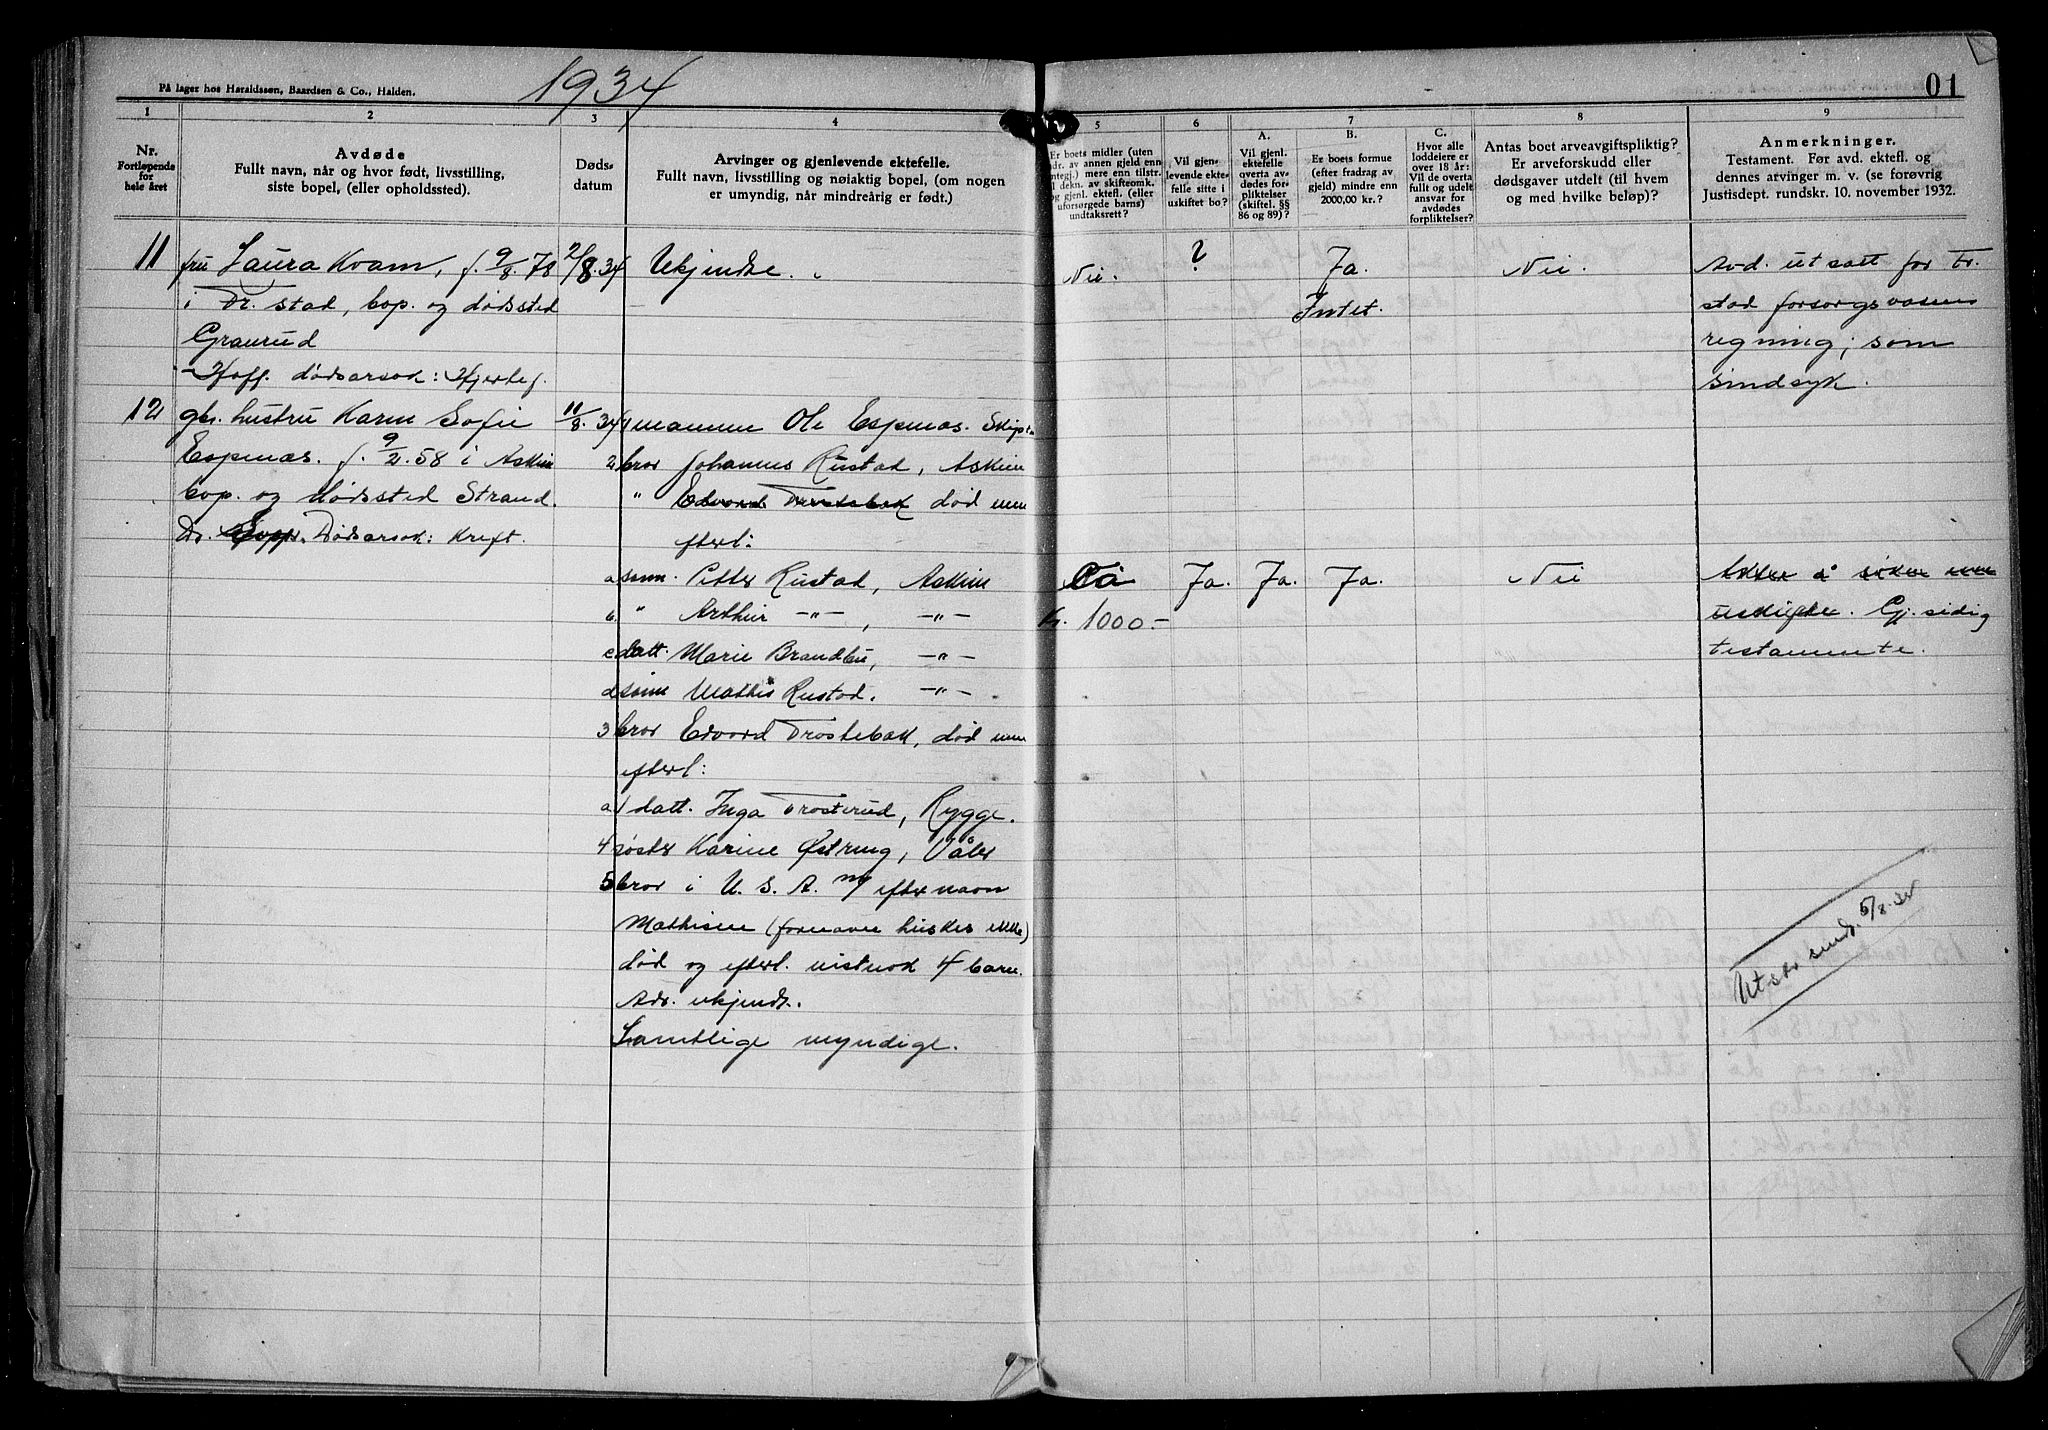 På lager hos Haraldssøn, Baardsen & Co., Halden.
1934
01
1
2
3
4
5
6
7
8
9
Nr.
Fortløpende
for
hele året
Avdøde
Fullt navn, når og hvor født, livsstilling,
siste bopel, (eller opholdssted).
Døds-
datum
Arvinger og gjenlevende ektefelle.
Fullt navn, livsstilling og nøiaktig bopel, (om nogen
er umyndig, når mindreårig er født.)
Er boets midler (uten
dr. av annen gjeld enn
ntegj.) mere enn tilstr.
l dekn. av skifteomk.
og gjenl. ektefl. (eller
uforsørgede barns)
undtaksrett?
Vil gjen-
levende ekte-
felle sitte i
uskiftet bo?
A.
Vil gjenl.
ektefelle
overta av-
dødes for-
pliktelser
(skiftel. §§
86 og 89)?
B.
Er boets formue
(efter fradrag av
gjeld) mindre enn
2000,00 kr.?
C.
Hvor alle
loddeiere er
over 18 år:
Vil de overta
fullt og udelt
ansvar for
avdødes
forpliktelser?
Antas boet arveavgiftspliktig?
Er arveforskudd eller
dødsgaver utdelt (til hvem
og med hvilke beløp)?
Anmerkninger.
Testament. Før avd. ektefl. og
dennes arvinger m. v. (se forøvrig
Justisdept. rundskr. 10. november 1932.
11 fru Laura Kvam, f. 9/8. 78 2/8. 34 Ukjendte.
i Tr. stad, bop. og dødssted
Graurud
Hoff. dødsarsak: Hjertef.
Nei. ? Ja. Nei.
Intet.
Avd. utsatt for Tr.
stad forsorgsvesens
regning, som
sindsyk.
12 gbr. hustru Karen Sofie 11/8. 34
Espenæs. f. 9/2. 58 i Askim
bop. og dødssted Strand.
Dr. Dødsarsak: Kreft.
1 mannen Ole Espenæs.
2 bror Johannes Rustad, Askim
" Edvard Trostebak død men
efterl:
a sønn. Petter Rustad, Askim
b. " Arthur —"— , —"—
c datt. Marie Brandbu, —"—
d sønn Mathis Rustad. —"—
3 bror Edvard Trostebak, død men
efterl:
a/ datt. Inga Trosterud, Rygge.
4 søster Karine Østreng, Våler
5 bror i U. S. A. m/ efternavn
Mathisen (fornavn huskes ikke)
død og efterl. vistnok 4 barn.
Adr. ukjendt.
Samtlige myndige.
Ca Ja. Ja. Ja. Nei
Kr. 1000.-
Akter å
Gj. sidig
testamente.
Utskr. send. 5/8.34